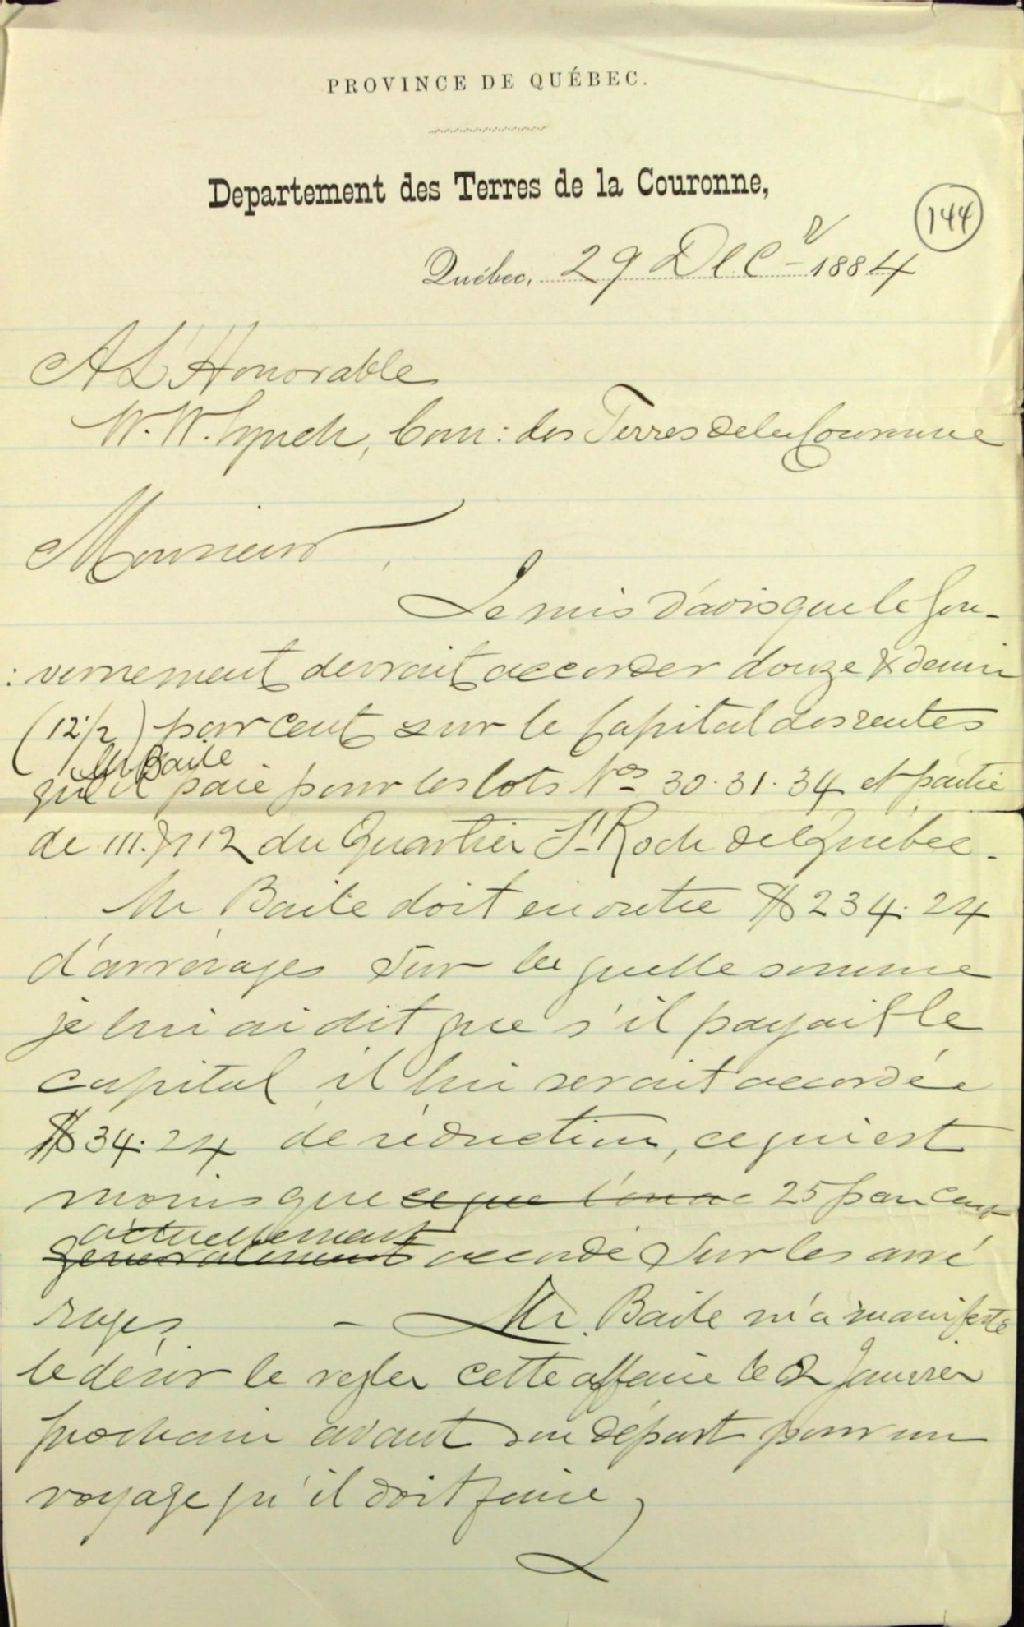 PROVINCE DE QUÉBEC.
Departement des Terres de la Couronne,
144
Québec, 29 Dec r 1884
A L'Honorable
W. W. Lynch, Com: des Terres de la Couronne
Monsieur,
Je suis d'avis que le Gou-
:vernement devrait accorder douze & demi
(12 1/2) par cent sur le Capital des rentes
Mr Baile
qu'il paie pour les lots Nos 30. 31. 34 et partie
de 111. & 112 du Quartier St Roch de Québec.
Mr Baile doit en outre $234.24
d'arrérages sur laquelle somme
je lui ai dit que s'il payait le
capital il lui serait accordée
$34.24 de réduction, ce qui est
moins que ce que l'on a 25 par cent
actuellement
généralement accordé sur les arré
rages - Mr. Baile m'a manifesté
le désir de regler cette affaire le 2 Janvier
prochain avant son départ pour un
voyage qu'il doit faire